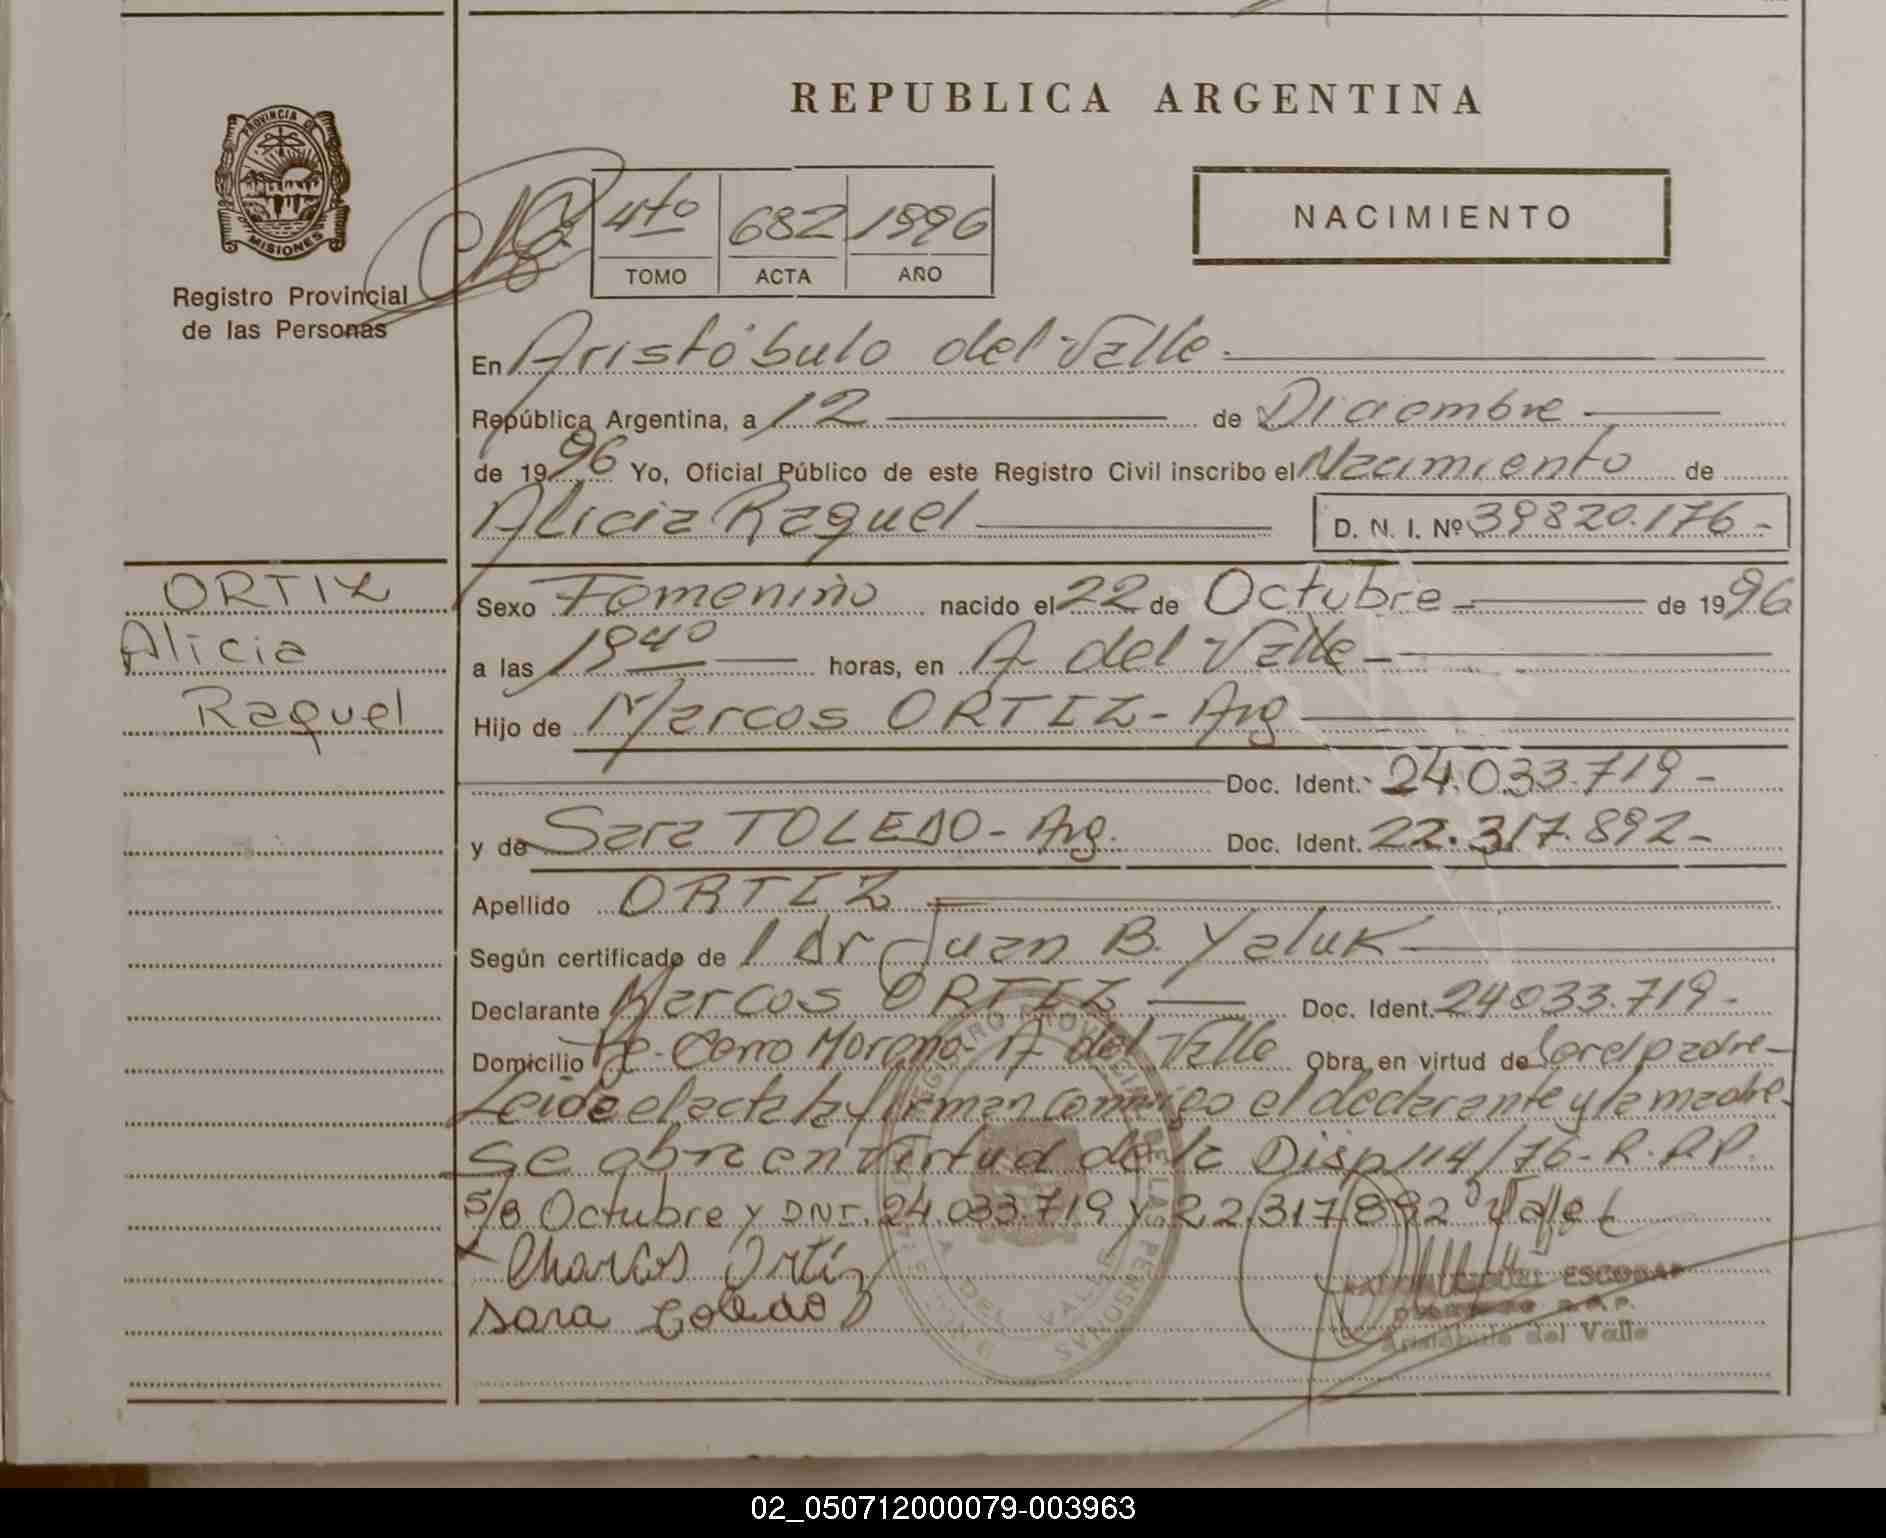 REPUBLICA ARGENTINA
PROVINCIA DE
MISIONES
Registro Provincial
de las Personas
4to 682 1996
TOMO ACTA AÑO
NACIMIENTO
En Aristóbulo del Valle.
República Argentina, a 12 de Diciembre
de 1996 Yo, Oficial Público de este Registro Civil inscribo el Nacimiento de
Alicia Raquel D. N. I. Nº 39820.176-
ORTIZ
Alicia
Raquel
Sexo Femenino nacido el 22 de Octubre de 1996
a las 19 40 horas, en A del Valle
Hijo de Marcos ORTIZ - Arg
Doc. Ident. 24.033.719-
y de Sara TOLEDO - Arg. Doc. Ident. 22.317.892-
Apellido ORTIZ
Según certificado de l Dr Juan B. Yaluk
Declarante Marcos ORTIZ Doc. Ident. 24033.719-
Domicilio Cerro Moreno A del Valle Obra en virtud de ser el padre-
Leida el acta la firman conmigo el declarante y la madre.
Se abre en virtud de la Disp 114/76- R.P.P.
S/B Octubre y DNI. 24.033.719 y 22.317.892 Vale
Marcos Ortiz
Sara Toledo
ESCOBAR
Aristóbulo del Valle
02_050712000079-003963